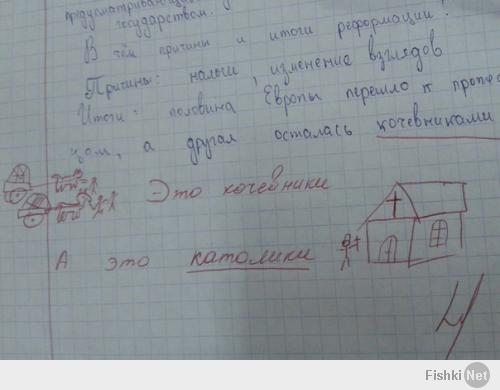 предусматривающи
государством.
В чём причины и итоги реформации?
Причины: налоги, изменение взглядов
Итоги: половина Европы перешло к
а другая осталась кочевниками
Это кочевники
А это католики
Fishki.Net